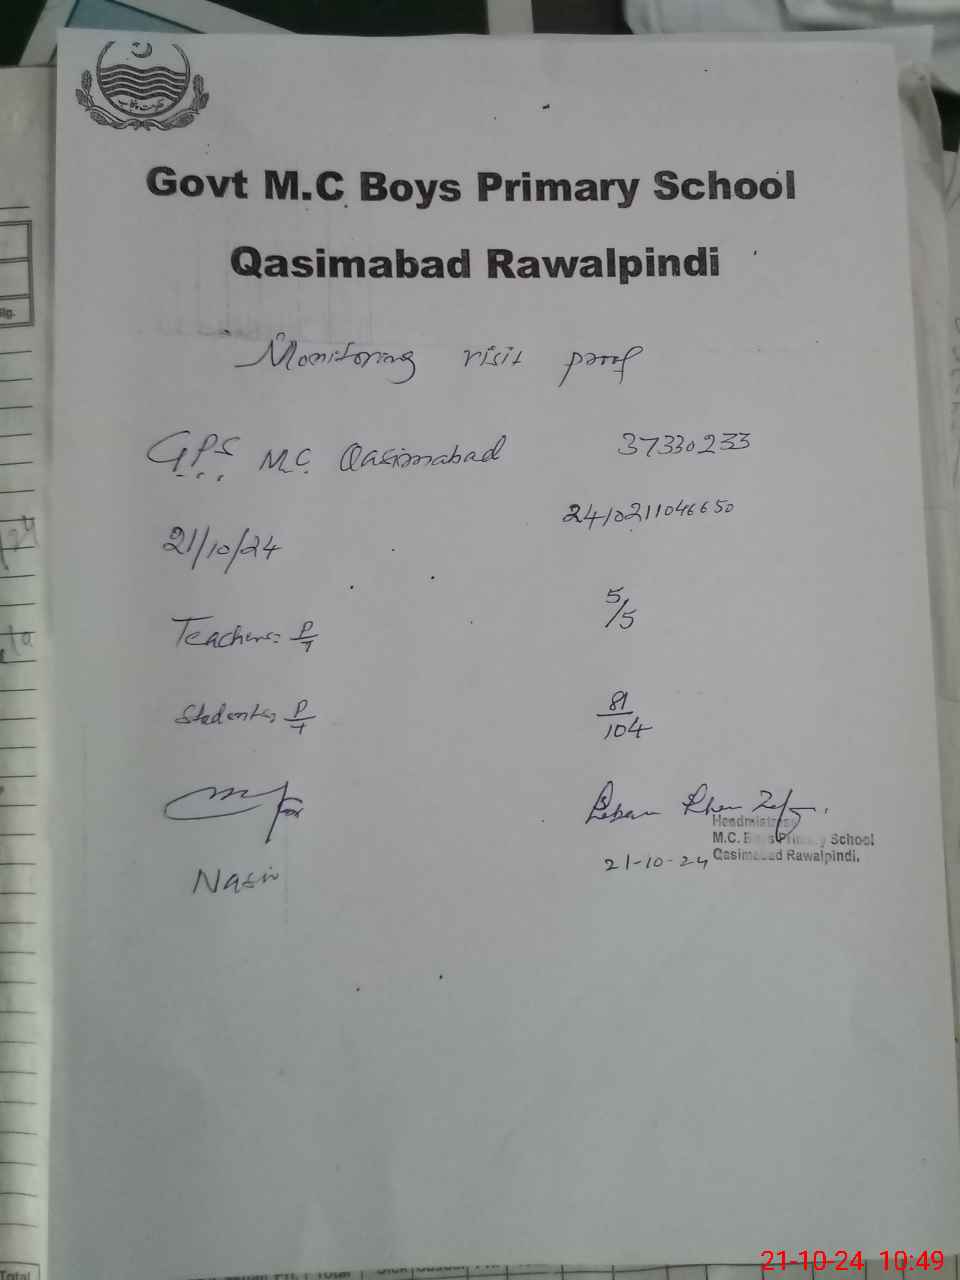 حکومت پنجاب
Govt M.C Boys Primary School
Qasimabad Rawalpindi
Monitoring visit proof
G.P.S M.C. Qasimabad 37330233
21/10/24 2410211046650
Teachers: P/T 5/5
Students: P/T 81/104
Nasir
Khan
Headmistress
M.C. Boys Primary School
21-10-24 Qasimabad Rawalpindi.
Total
21-10-24 10:49